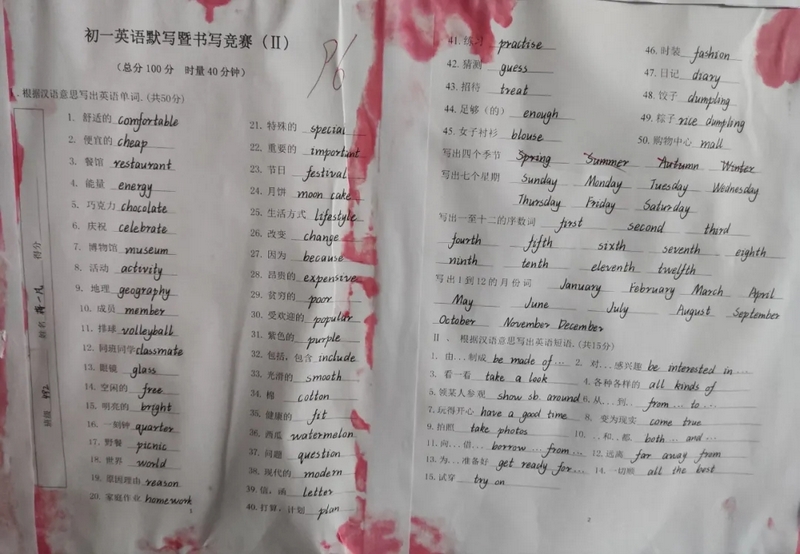 初一英语默写暨书写竞赛（II）
（总分100分 时量40分钟）
根据汉语意思写出英语单词.(共50分)
1. 舒适的 comfortable
2. 便宜的 cheap
3. 餐馆 restaurant
4. 能量 energy
5. 巧克力 chocolate
6. 庆祝 celebrate
7. 博物馆 museum
8. 活动 activity
9. 地理 geography
10. 成员 member
11. 排球 volleyball
12. 同班同学 classmate
13. 眼镜 glass
14. 空闲的 free
15. 明亮的 bright
16. 一刻钟 quarter
17. 野餐 picnic
18. 世界 world
19. 原因理由 reason
20. 家庭作业 homework
21. 特殊的 special
22. 重要的 important
23. 节日 festival
24. 月饼 moon cake
25. 生活方式 lifestyle
26. 改变 change
27. 因为 because
28. 昂贵的 expensive
29. 贫穷的 poor
30. 受欢迎的 popular
31. 紫色的 purple
32. 包括，包含 include
33. 光滑的 smooth
34. 棉 cotton
35. 健康的 fit
36. 西瓜 watermelon
37. 问题 question
38. 现代的 modern
39. 信，函 letter
40. 打算，计划 plan
1
班级
姓名
得分
41. 练习 practise
42. 猜测 guess
43. 招待 treat
44. 足够（的） enough
45. 女子衬衫 blouse
46. 时装 fashion
47. 日记 diary
48. 饺子 dumpling
49. 粽子 rice dumpling
50. 购物中心 mall
写出四个季节 Spring Summer Autumn Winter
写出七个星期 Sunday Monday Tuesday Wednesday
Thursday Friday Saturday
写出一至十二的序数词 first second third
fourth fifth sixth seventh eighth
ninth tenth eleventh twelfth
写出1到12的月份词 January February March April
May June July August September
October November December
II 、 根据汉语意思写出英语短语.(共15分)
1. 由…制成 be made of … 2. 对…感兴趣 be interested in …
3. 看一看 take a look 4.各种各样的 all kinds of
5.领某人参观 show sb. around 6.从…到… from … to …
7.玩得开心 have a good time 8. 变为现实 come true
9.拍照 take photos 10. …和…都 both … and …
11.向…借… borrow … from … 12.远离 far away from
13.为…准备好 get ready for … 14.一切顺 all the best
15.试穿 try on
2